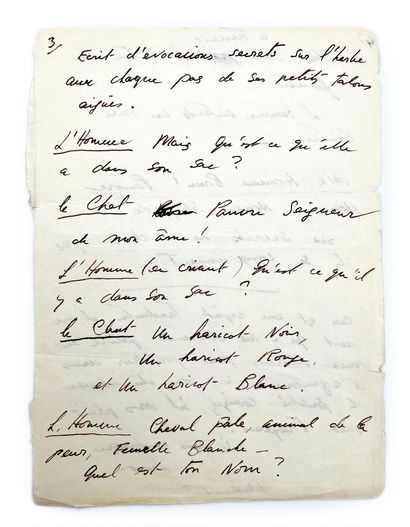 3/
Ecrit d'evocations secrets sur l'herbe
aux chaque pas de ses petits talons
aigües.
L'Homme Mais qu'est ce qu'elle
a dans son sac ?
le Chat Pauvre Seigneur
de mon âme !
L'Homme (en criant) Qu'est ce qu'il
y a dans son sac ?
le Chat Un haricot Noir,
Un haricot Rouge,
et Un haricot Blanc.
L'Homme Cheval pâle, animal de la
peur, Femelle Blanche —
Quel est ton Nom ?